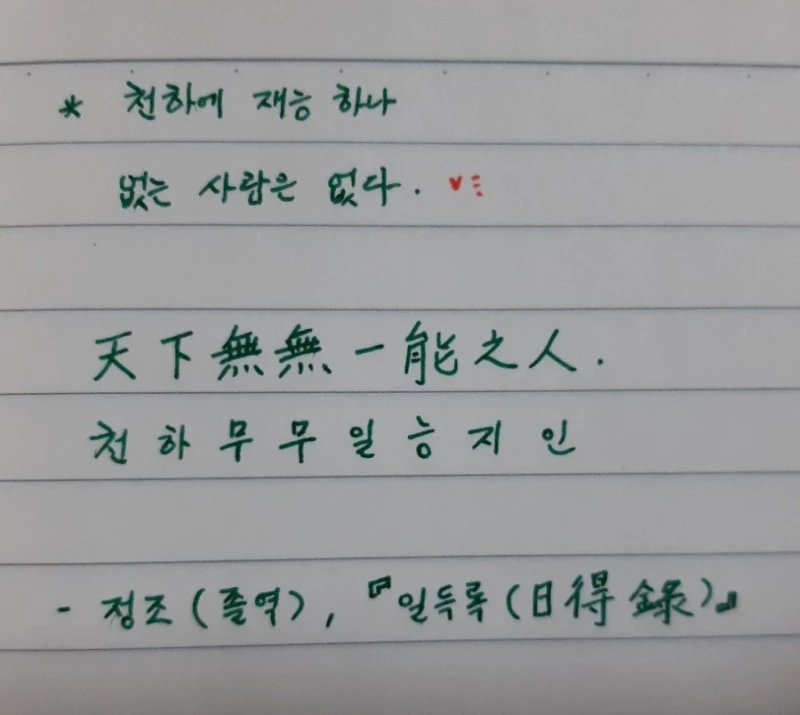 * 천하에 재능 하나
없는 사람은 없다. ♥
天下無無一能之人.
천하무무일능지인
- 정조(졸역), 『일득록(日得錄)』